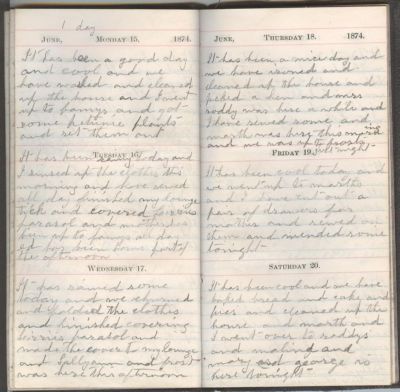 1 day
JUNE, MONDAY 15. 1874.
It has been a good day
and cool and we
have washed and cleaned
up the house and I went
up to fannys and got
some petunie plants
and set them out
TUESDAY 16.
It has been day and
I rinsed up the clothes this
morning and have sewed
all day finished my lounge
tick and covered
parasol and mother
been up to fannys all day
ed has been home part of
the afternoon
WEDNESDAY 17.
It has rained some
today and we churned
and folded the clothes
and finished covering
parasol and
made the cover to my lounge
and fally am and
was here this afternoon
JUNE, THURSDAY 18. 1874.
It has been a nice day and
we have ironed and
cleaned up the house and
picked a hen and mrs
roddy was here a while and
I have sewed some and
marth was here this morning
and we was up to
last night
FRIDAY 19.
It has been cool today and
we went up to marths
and I have cut out a
pair of drawers for
mother and sewed on
them and mended some
tonight
SATURDAY 20.
It has been cool and we have
baked bread and cake and
pies and cleaned up the
house and marth and
I went over to roddys
and
mary and george is
here tonight